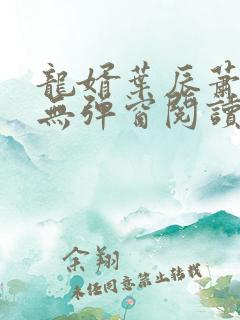 龍婿葉辰蕭
無彈窗閱讀
余翔
未经同意禁止转载